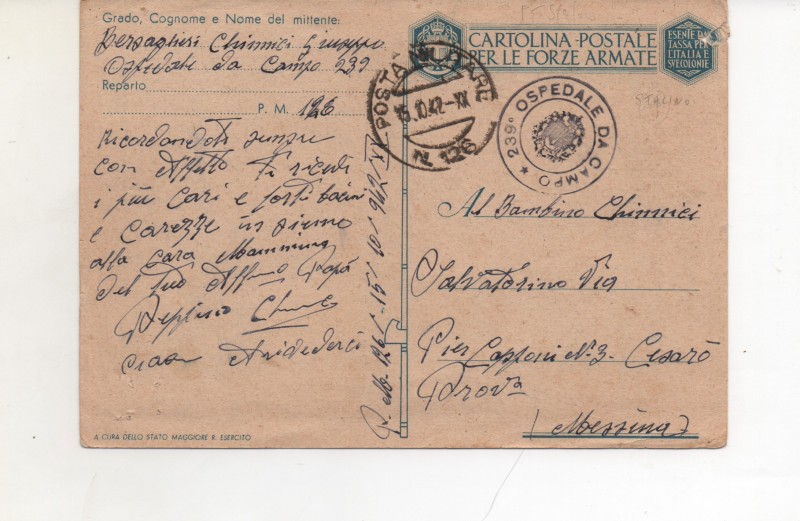 Grado, Cognome e Nome del mittente:
Bersaglieri Chinnici Giuseppe
Ospedale da Campo 239
Reparto
P. M. 126
Ricordandoti sempre
con Affetto Ti
i più Cari e forti baci
e Carezze insieme
alla Cara Mammina
del tuo Affmo Papà
ciao Arivederci
A CURA DELLO STATO MAGGIORE R. ESERCITO
P. M. 126 15/10/942 XX
POSTA MILITARE
15.10.42-XX
N. 126
CARTOLINA POSTALE
PER LE FORZE ARMATE
ESENTE DA
TASSA PER
L'ITALIA E
SVE COLONIE
239° OSPEDALE DA CAMPO
STALINO
Al Bambino Chinnici
Salvatorino Via
Pier Capponi N° 3. Cesarò
Prova
(Messina)